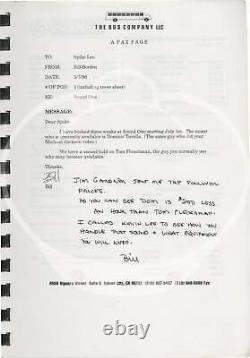 THE BUS COMPANY LLC
A FAX PAGE
TO: Spike Lee
FROM: Bill
DATE:
# OF PGS: 1 (including cover sheet)
RE: Sound One
MESSAGE:
Dear Spike
I have booked three weeks at Sound One starting July 1st. The mixer who
is currently available is Dominic Tavella. (The same guy who did your
Michael Jackson video.)
We may have a second hold on Tom Fleischman, the guy you normally use
who may become available.
Thanks,
Bill
Bill
JIM GARDNER SENT ME THE FOLLOWING
PAGES.
AS YOU CAN SEE DOM IS $200 LESS
AN HOUR THAN TOM FLEISCHMAN.
I CALLED KEVIN LEE TO SEE HOW YOU
HANDLE THAT SOUND + WHAT EQUIPMENT
YOU WILL NEED.
Bill